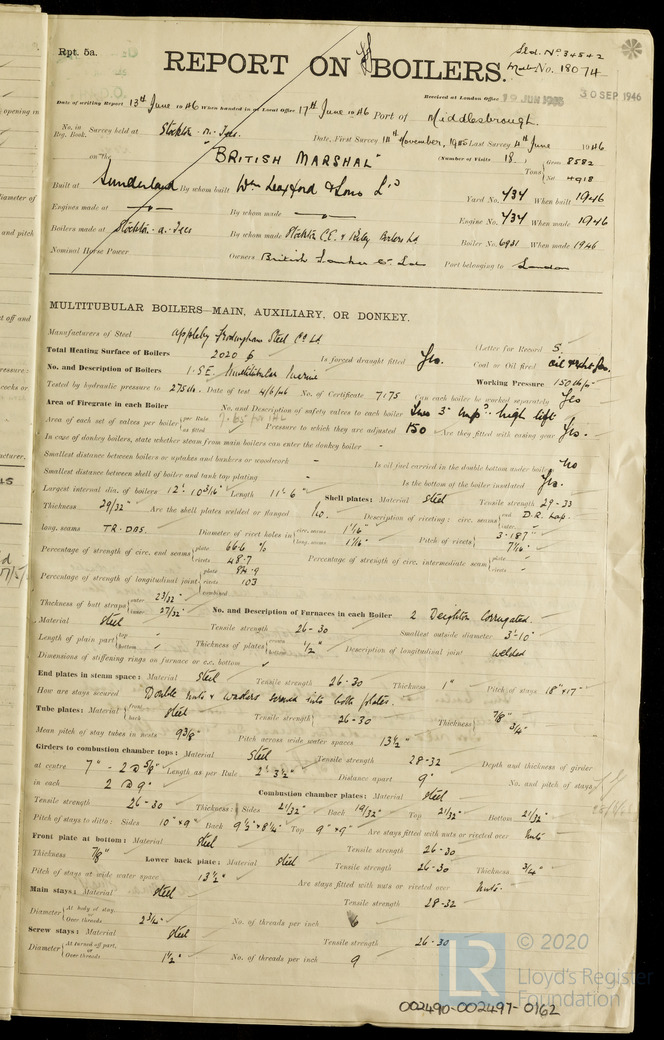 Rpt. 5a.
REPORT ON BOILERS.
Sld. No 34542
Mdb No. 18074
Received at London Office 19 JUN
30 SEP 1946
Date of writing Report 13th June 1946 When handed in at Local Office 17th June 1946 Port of Middlesbrough.
No. in Reg. Book. Survey held at Stockton-n-Tees. Date, First Survey November, 1945 Last Survey 4th June 1946
on the "BRITISH MARSHAL" (Number of Visits 18) Tons Gross 8582 Net 4918
Built at Sunderland By whom built Wm & Sons Ld Yard No. 434 When built 1946
Engines made at By whom made Engine No. 434 When made 1946
Boilers made at Stockton-o-Tees By whom made Stockton C.E. & Riley Boilers Ld Boiler No. 6931 When made 1946
Nominal Horse Power Owners British Tanker Co Ld Port belonging to London
MULTITUBULAR BOILERS—MAIN, AUXILIARY, OR DONKEY.
Manufacturers of Steel Appleby Frodingham Steel Co Ld
Total Heating Surface of Boilers 2020 Is forced draught fitted Yes. (Letter for Record S.
No. and Description of Boilers 1. S.E. Multitubular Marine Coal or Oil fired oil
Working Pressure 150
Tested by hydraulic pressure to 275 Date of test 4/6/46 No. of Certificate 7175 Can each boiler be worked separately Yes
Area of Firegrate in each Boiler No. and Description of safety valves to each boiler Two 3" high lift
Area of each set of valves per boiler per Rule as fitted Pressure to which they are adjusted 150 Are they fitted with easing gear Yes.
In case of donkey boilers, state whether steam from main boilers can enter the donkey boiler -
Smallest distance between boilers or uptakes and bunkers or woodwork - Is oil fuel carried in the double bottom under boiler No
Smallest distance between shell of boiler and tank top plating - Is the bottom of the boiler insulated Yes.
Largest internal dia. of boilers 12'. 10 3/16" Length 11'-6" Shell plates: Material Steel Tensile strength 29-33
Thickness 29/32" Are the shell plates welded or flanged No. Description of riveting: circ. seams end D.R. Lap. inter.
long. seams T.R. D.B.S. Diameter of rivet holes in circ. seams 1 1/16" long. seams 1 1/16" Pitch of rivets 3.187" 7 1/16"
Percentage of strength of circ. end seams plate 66.6 % rivets 48.7 Percentage of strength of circ. intermediate seam plate rivets
Percentage of strength of longitudinal joint plate 84.9 rivets 103 combined
Thickness of butt straps outer 23/32" inner 27/32" No. and Description of Furnaces in each Boiler 2 Deighton Corrugated.
Material Steel Tensile strength 26-30 Smallest outside diameter 3'-10"
Length of plain part top bottom Thickness of plates crown bottom 1/2" Description of longitudinal joint welded
Dimensions of stiffening rings on furnace or c.c. bottom
End plates in steam space: Material Steel Tensile strength 26-30 Thickness 1" Pitch of stays 18" x 17"
How are stays secured Double nuts & washers screwed into both plates.
Tube plates: Material front back steel Tensile strength 26-30 Thickness 7/8" 3/4"
Mean pitch of stay tubes in nests 9 3/8" Pitch across wide water spaces 13 1/2"
Girders to combustion chamber tops: Material Steel Tensile strength 28-32 Depth and thickness of girder
at centre 7" - 2 @ 5/8" Length as per Rule 2'. 3 1/2" Distance apart 9" No. and pitch of stays
in each 2 @ 9" Combustion chamber plates: Material Steel
Tensile strength 26-30 Thickness: Sides 21/32" Back 19/32" Top 21/32" Bottom 21/32"
Pitch of stays to ditto: Sides 10" x 9" Back 9 1/2" x 8 1/4" Top 9" x 9" Are stays fitted with nuts or riveted over Nuts
Front plate at bottom: Material Steel Tensile strength 26-30
Thickness 7/8" Lower back plate: Material steel Tensile strength 26-30 Thickness 3/4"
Pitch of stays at wide water space 13 1/2" Are stays fitted with nuts or riveted over Nuts.
Main stays: Material steel Tensile strength 28-32
Diameter At body of stay, or Over threads 2 3/4" No. of threads per inch 6
Screw stays: Material steel Tensile strength 26-30
Diameter At turned off part, or Over threads 1 1/2" No. of threads per inch 9
© 2020
LR
Lloyd's Register
Foundation
002490-002497-0162